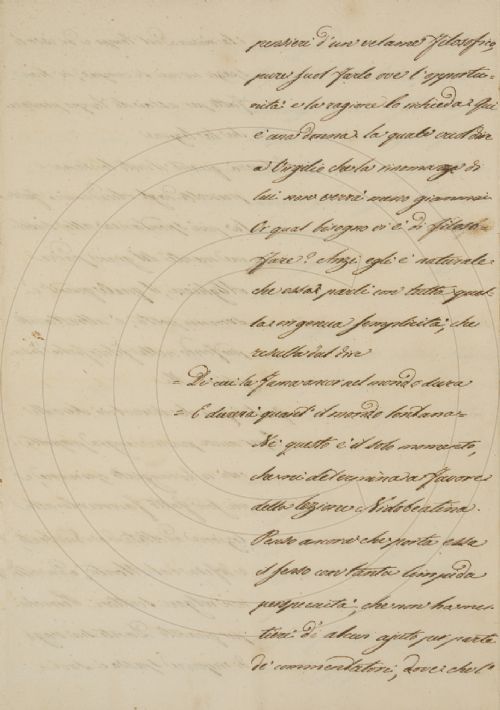 pensieri d'un velame filosofico,
pure suol farlo ove l'opportu-
nità e la ragione lo richieda. Qui
è una donna la quale vuol dire
a Virgilio che la rinomanza di
lui non verrà meno giammai.
Or qual bisogno vi è di filoso-
fare? Anzi egli è naturale
che essa parli con tutta quel-
la ingenua semplicità, che
risulta dal dire
= Di cui la fama ancor nel mondo dura
= E durerà quant' il mondo lontana=
Nè questo è il solo momento,
che mi determina a favore
della lezione Nidobeatina.
Penso ancora che porta essa
il senso con tanta limpida
perspicuità, che non ha me-
stieri di alcun ajuto per parte
de' commentatori, dove che l'